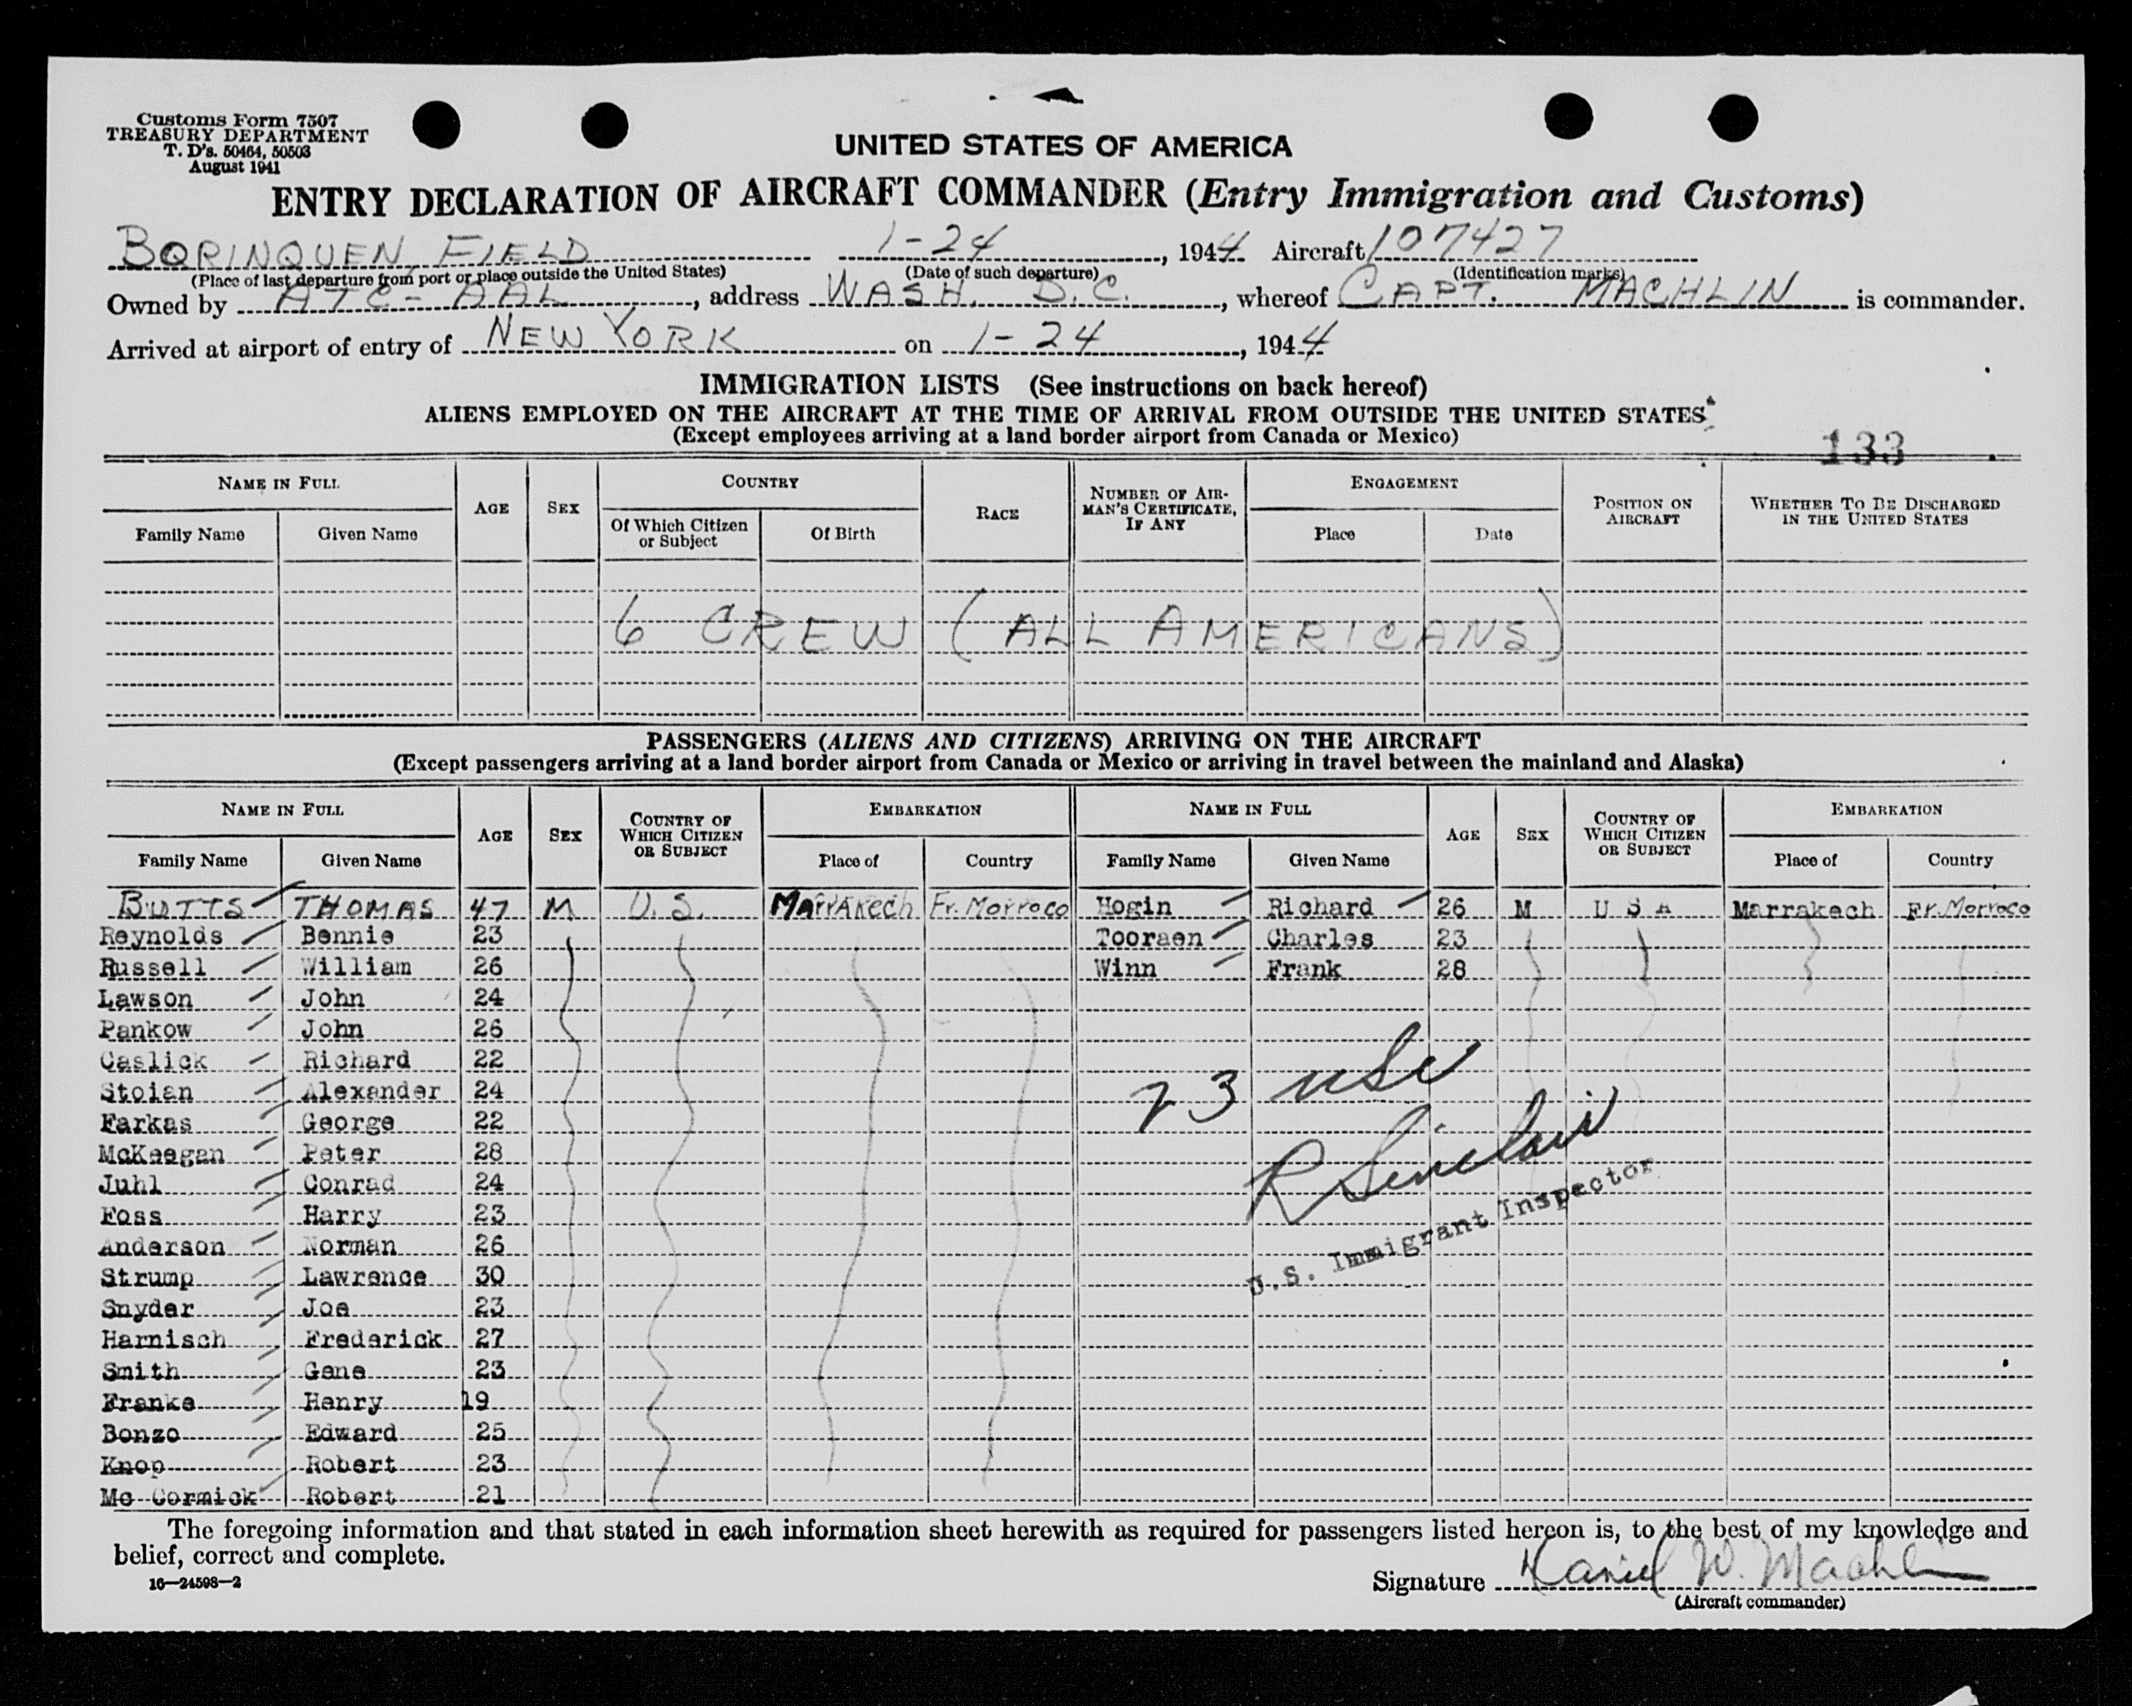 Customs Form 7507
TREASURY DEPARTMENT
T. D's. 50464, 50503
August 1941
UNITED STATES OF AMERICA
ENTRY DECLARATION OF AIRCRAFT COMMANDER (Entry Immigration and Customs)
BORINQUEN FIELD 1-24, 1944 Aircraft 107427
(Place of last departure from port or place outside the United States) (Date of such departure) (Identification marks)
Owned by ATC - AAL, address WASH. D.C., whereof CAPT. MACHLIN is commander.
Arrived at airport of entry of NEW YORK on 1-24, 1944
IMMIGRATION LISTS (See instructions on back hereof)
ALIENS EMPLOYED ON THE AIRCRAFT AT THE TIME OF ARRIVAL FROM OUTSIDE THE UNITED STATES
(Except employees arriving at a land border airport from Canada or Mexico)
133
NAME IN FULL AGE SEX COUNTRY RACE NUMBER OF AIRMAN'S CERTIFICATE, IF ANY ENGAGEMENT POSITION ON AIRCRAFT WHETHER TO BE DISCHARGED IN THE UNITED STATES
Family Name Given Name Of Which Citizen or Subject Of Birth Place Date
6 CREW (ALL AMERICANS)
PASSENGERS (ALIENS AND CITIZENS) ARRIVING ON THE AIRCRAFT
(Except passengers arriving at a land border airport from Canada or Mexico or arriving in travel between the mainland and Alaska)
NAME IN FULL AGE SEX COUNTRY OF WHICH CITIZEN OR SUBJECT EMBARKATION NAME IN FULL AGE SEX COUNTRY OF WHICH CITIZEN OR SUBJECT EMBARKATION
Family Name Given Name Place of Country Family Name Given Name Place of Country
BUTTS THOMAS 47 M U.S. MARRAKECH Fr. Morroco Hogin Richard 26 M U S A Marrakech Fr. Morroco
Reynolds Bennie 23 Tooraen Charles 23
Russell William 26 Winn Frank 28
Lawson John 24
Pankow John 26
Caslick Richard 22
Stoian Alexander 24
Farkas George 22
McKeegan Peter 28
Juhl Conrad 24
Foss Harry 23
Anderson Norman 26
Strump Lawrence 30
Snyder Joe 23
Harnisch Frederick 27
Smith Gene 23
Franke Henry 19
Bonzo Edward 25
Knop Robert 23
Mc Cormick Robert 21
23 usc
R Sinclair
U.S. Immigrant Inspector
The foregoing information and that stated in each information sheet herewith as required for passengers listed hereon is, to the best of my knowledge and
belief, correct and complete.
16—24598-2
Signature Daniel W. Machlin
(Aircraft commander)